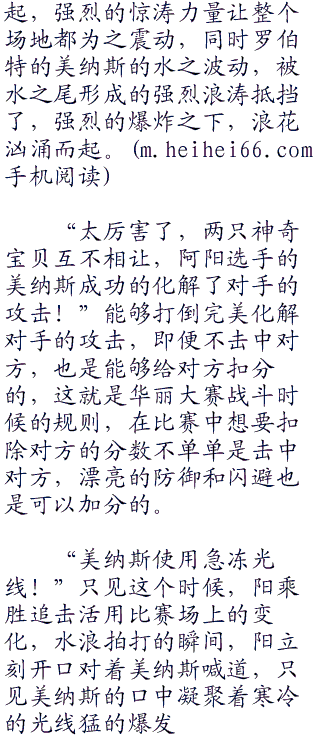 起，强烈的惊涛力量让整个
场地都为之震动，同时罗伯
特的美纳斯的水之波动，被
水之尾形成的强烈浪涛抵挡
了，强烈的爆炸之下，浪花
汹涌而起。(m.heihei66.com
手机阅读)
“太厉害了，两只神奇
宝贝互不相让，阿阳选手的
美纳斯成功的化解了对手的
攻击！”能够打倒完美化解
对手的攻击，即便不击中对
方，也是能够给对方扣分
的，这就是华丽大赛战斗时
候的规则，在比赛中想要扣
除对方的分数不单单是击中
对方，漂亮的防御和闪避也
是可以加分的。
“美纳斯使用急冻光
线！”只见这个时候，阳乘
胜追击活用比赛场上的变
化，水浪拍打的瞬间，阳立
刻开口对着美纳斯喊道，只
见美纳斯的口中凝聚着寒冷
的光线猛的爆发